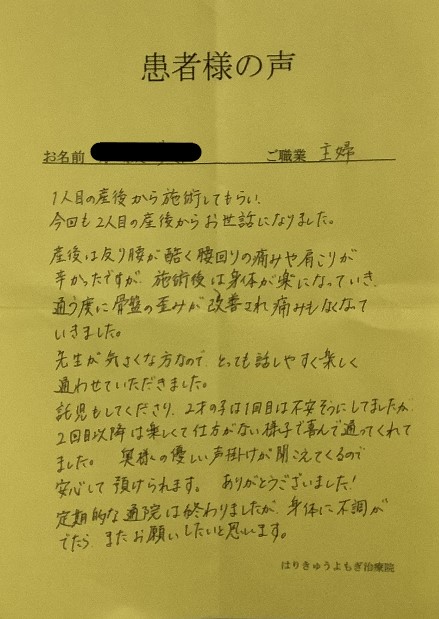 患者様の声
お名前
ご職業 主婦
1人目の産後から施術してもらい、
今回も2人目の産後からお世話になりました。
産後は反り腰が酷く腰回りの痛みや肩こりが
辛かったですが、施術後は身体が楽になっていき、
通う度に骨盤の歪みが改善され痛みもなくなて
いきました。
先生が気さくな方なので、とっても話しやすく楽しく
通わせていただきました。
託児もしてくださり、2才の子は1回目は不安そうにしてましたが、
2回目以降は楽しくて仕方がない様子で喜んで通ってくれて
ました。 奥様の優しい声掛けが聞こえてくるので
安心して預けられます。 ありがとうございました!
定期的な通院は終わりましたが、身体に不調が
でたら、またお願いしたいと思います。
はりきゅうよもぎ治療院